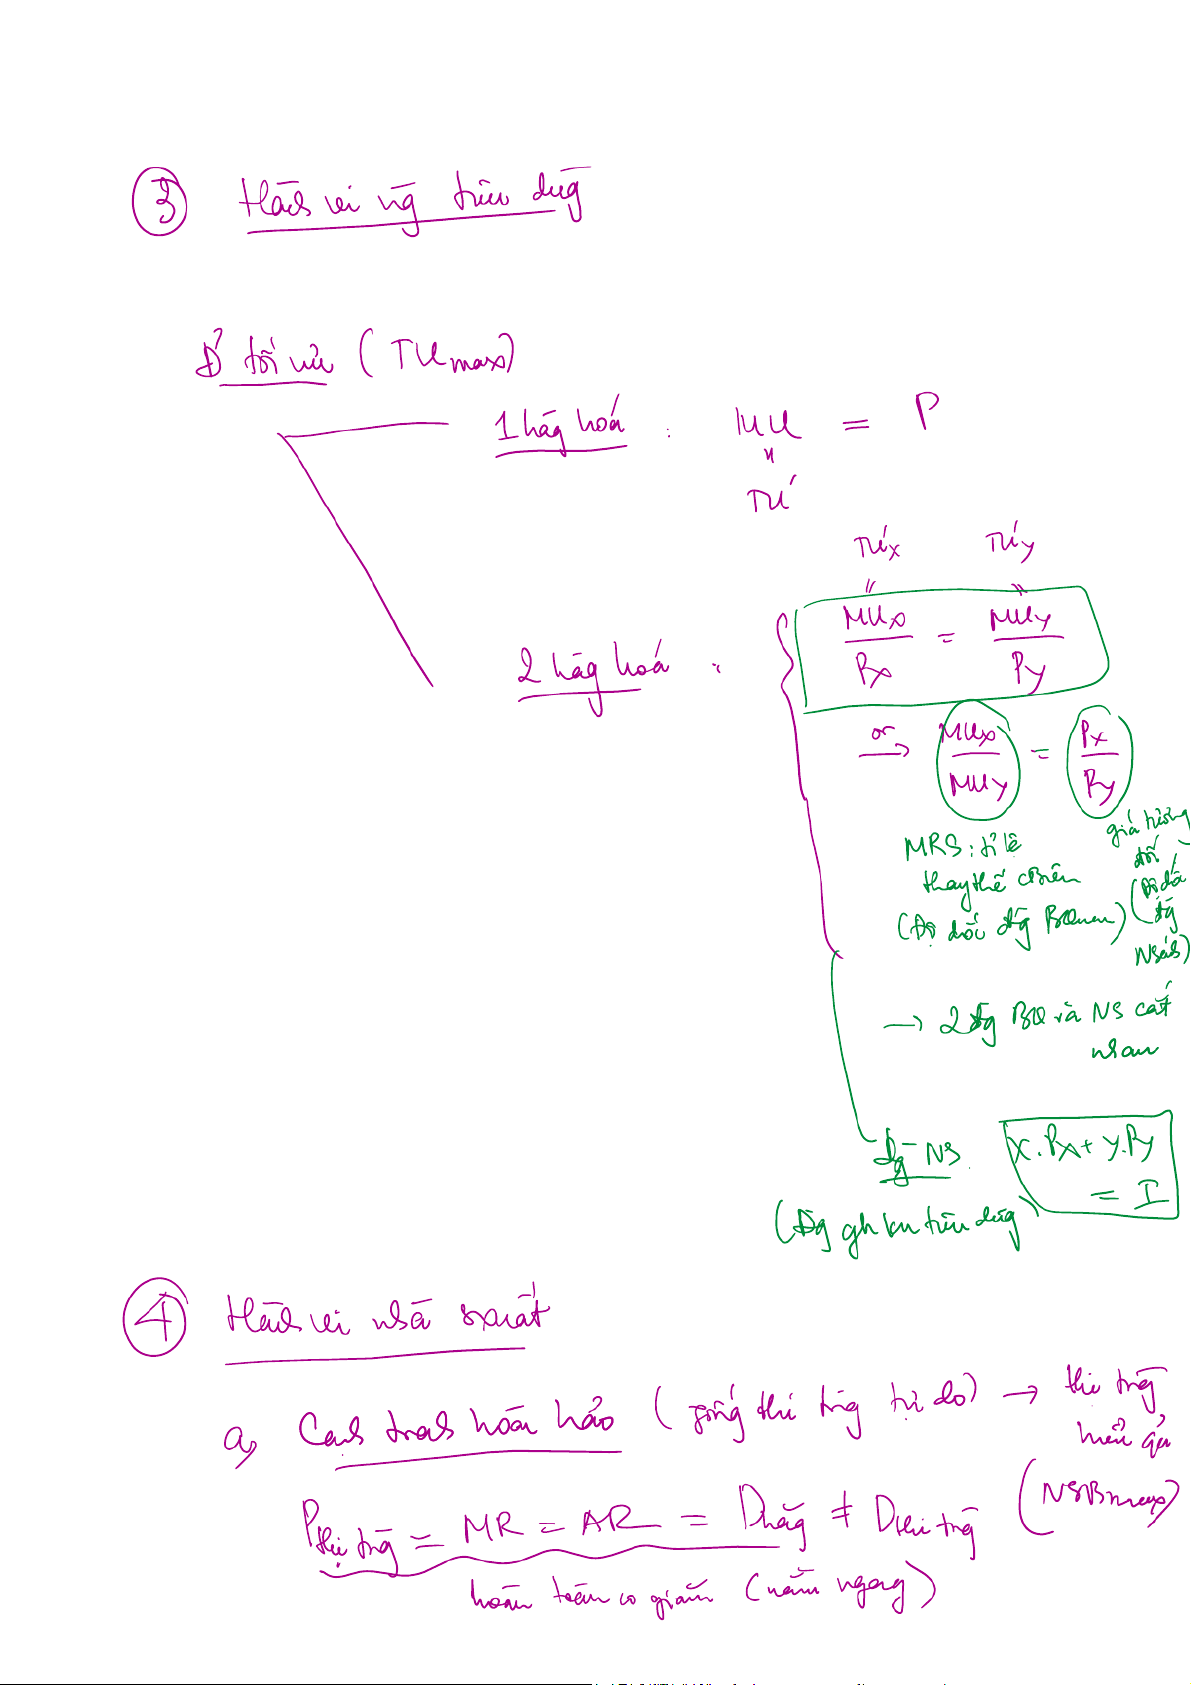 ③ Hành vi ng̃ tiêu dùg
Để tối ưu (TUmax)
1 hàg hoá : MU = P
"
TU'
TU'x TU'y
" "
2 hàg hoá : MUx/Px = MUy/Py
or → MUx/MUy = Px/Py
MRS: tỉ lệ
thay thế cbiên
(Độ dốc đg BQuan)
giá tương
đối
(Độ dốc
đg
NSách)
→ 2 đg BQ và NS cắt
nhau
Đg NS x.Px + y.Py
= I
(Đg gh kn tiêu dùg)
④ Hành vi nhà sxuất
a, Cạnh tranh hoàn hảo (giống thị trg tự do) → thị trg
hiệu quả
(NSBmax)
Pthị trg = MR = AR = Dhãg ≠ Dthị trg
hoàn toàn co giãn (nằm ngang)